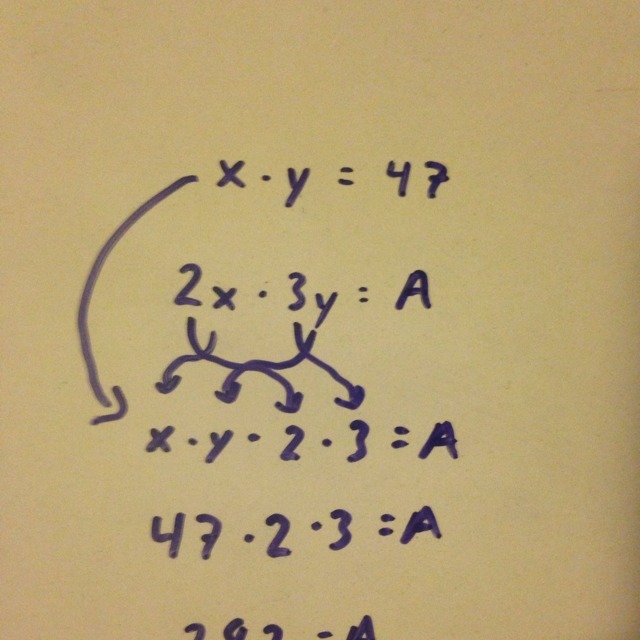 x · y = 47
2x · 3y = A
x · y · 2 · 3 = A
47 · 2 · 3 = A
= A